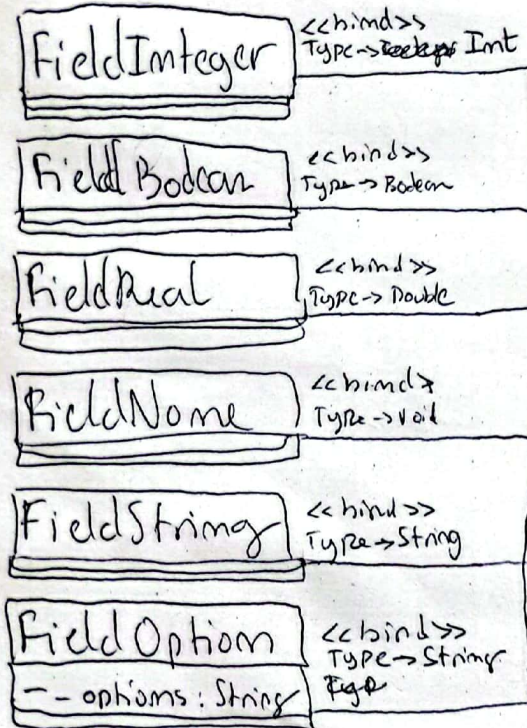 FieldInteger
<<bind>>
Type→ Int
Field Boolean
<<bind>>
Type→Boolean
FieldReal
<<bind>>
Type→Double
FieldNone
<<bind>
Type→Void
FieldString
<<bind>>
Type→String
Field Option
<<bind>>
Type→String
-- options: String